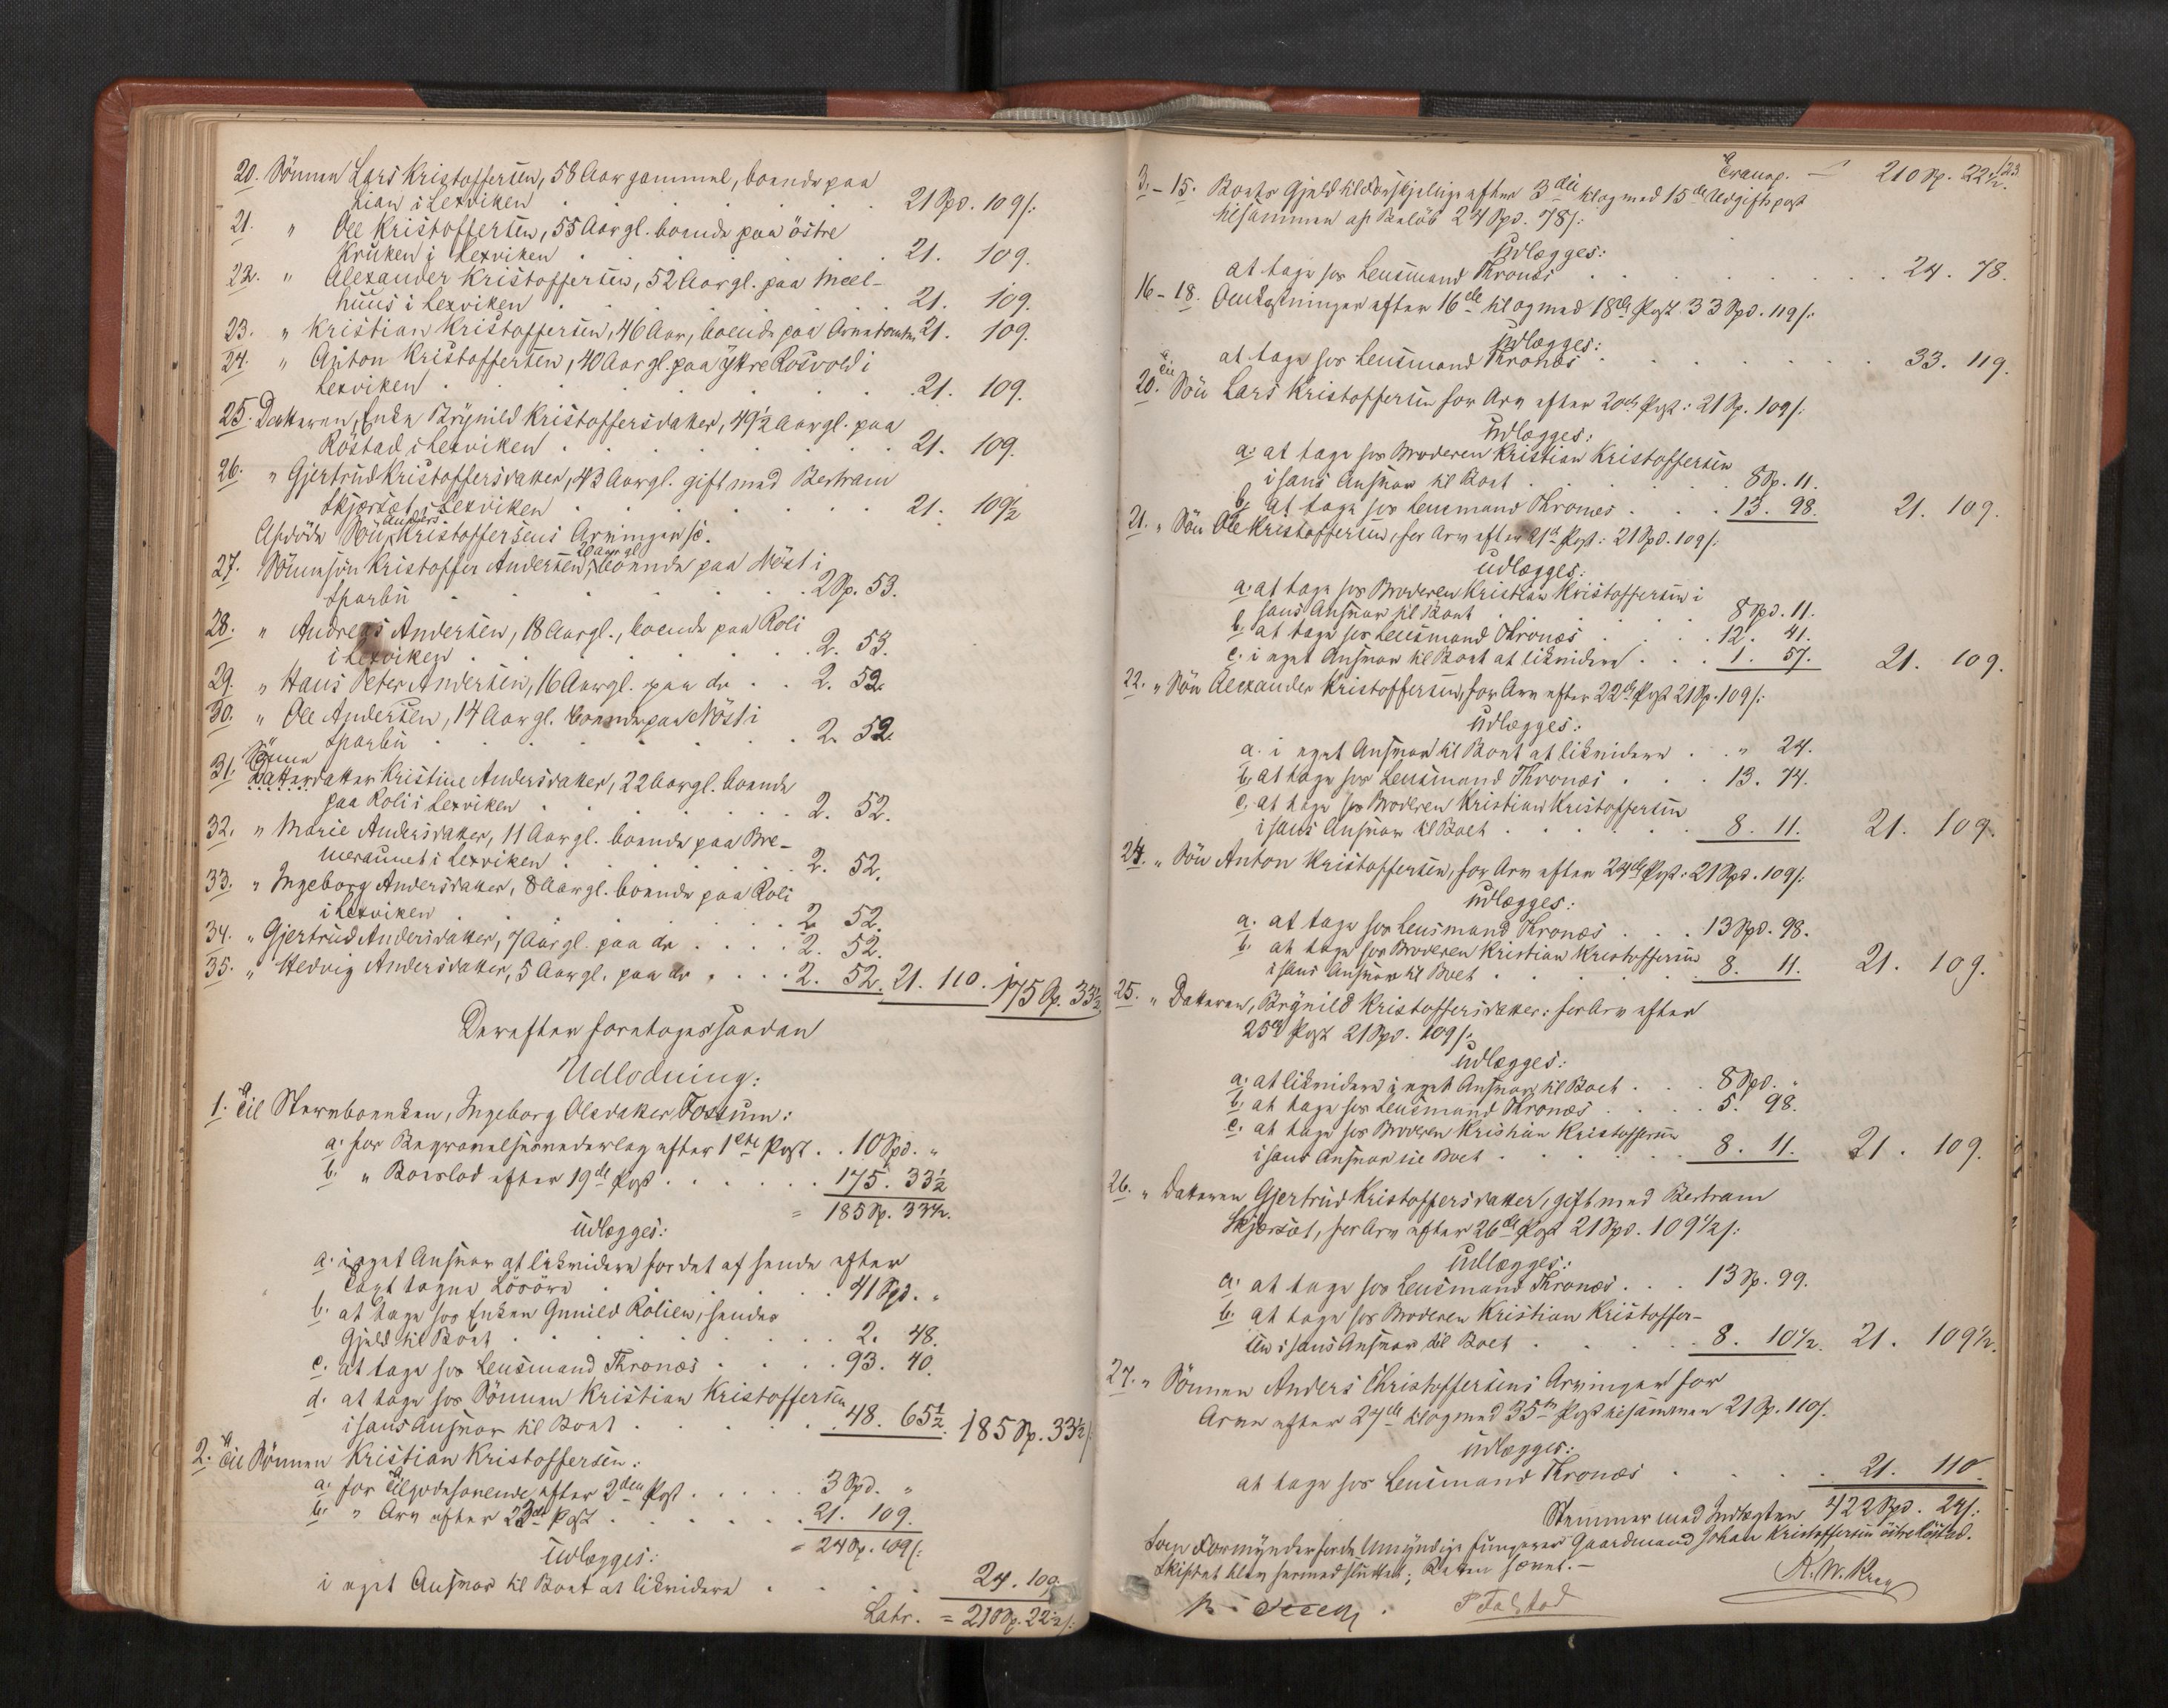 20. Sönnen Lars Kristoffersen, 58 Aar gammel, boende paa
Lian i Lexviken . . . 21 Spd. 109 ſ:
21. " Ole Kristoffersen, 55 Aar gl. boende paa östre
Kruken i Lexviken . . . 21. 109.
22. " Alexander Kristoffersen, 52 Aar gl. paa Meel-
huus i Lexviken . . . 21. 109.
23. " Kristian Kristoffersen, 46 Aar, boende paa 21. 109.
24. " Anton Kristoffersen, 40 Aar gl. paa Ytre Rösvold i
Lexviken . . . 21. 109.
25. Datteren, Enke Brynild Kristoffersdatter, 49½ Aar gl. paa
Röstad i Lexviken . . . 21. 109.
26. " Gjertrud Kristoffersdatter, 43 Aar gl. gift med Bertram
Skjærsat i Lexviken . . . 21. 109½
Afdöde Sön Anders Kristoffersens Arvinger
27. Sönnesön Kristoffer Andersen, 20 Aar gl. boende paa Nöst i
Sparbu . . . 2 Sp. 53.
28. " Andreas Andersen, 18 Aar gl., boende paa Roli
i Lexviken . . . 2. 53.
29. " Hans Peter Andersen, 16 Aar gl. paa do . . 2. 52.
30. " Ole Andersen, 14 Aar gl. boende paa Nöst i
Sparbu . . . 2. 52.
31. Sönne Datterdatter Kristine Andersdatter, 22 Aar gl. boende
paa Roli i Lexviken . . . 2. 52.
32. " Marie Andersdatter, 11 Aar gl. boende paa Bre-
meraunet i Lexviken . . . 2. 52.
33. " Ingeborg Andersdatter, 8 Aar gl. boende paa Roli
i Lexviken . . . 2. 52.
34. " Gjertrud Andersdatter, 7 Aar gl. paa do . . . 2. 52.
35. " Hedvig Andersdatter, 5 Aar gl. paa do . . . 2. 52. 21. 110. 175 Sp. 33½
Derefter foretoges saadan
Udlodning:
1. Til Stervboenken, Ingeborg Olsdatter Fossum:
a. for Begravelsesvederlag efter 1ste Post . . 10 Spd. "
b. " Boeslod efter 19de Post . . . 175. 33½
= 185 Sp. 33½.
Udlægges:
a. i eget Ansvar at likvidere for det af hende efter
Taxt tagne Lösöre . . . 41 Spd. "
b. at tage hos Enken Gunild Rolien, hendes
Gjeld til Boet . . . 2. 48.
c. at tage hos Lensmand Thronæs . . . 93. 40.
d. at tage hos Sönnen Kristian Kristoffersen
i hans Ansvar til Boet . . . 48. 65½. 185 Sp. 33½ ſ:
2. Til Sönnen Kristian Kristoffersen:
a. for Tilgodehavende efter 2den Post . . . 3 Spd. "
b. " Arv efter 23de Post . . . 21. 109.
= 24 Sp. 109 ſ:
Udlægges:
i eget Ansvar til Boet at likvidere . . . 24. 109.
Latr. = 210 Sp. 22½ ſ:
123
Transp. — 210 Sp. 22½.
3. – 15. Boets Gjeld til forskjellige efter 3die til og med 15de Udgiftspost
tilsammen af Belöb 24 Spd. 78 ſ:
Udlægges:
at tage hos Lensmand Thronæs . . . 24. 78.
16 – 18. Omkostninger efter 16de til og med 18de Post 33 Spd. 119 ſ:
Udlægges:
at tage hos Lensmand Thronæs . . . 33. 119.
20. Til Sön Lars Kristoffersen for Arv efter 20de Post: 21 Sp. 109 ſ:
Udlægges:
a. at tage hos Broderen Kristian Kristoffersen
i hans Ansvar til Boet . . . 8 Sp. 11.
b. at tage hos Lensmand Thronæs . . . 13. 98. 21. 109.
21. " Sön Ole Kristoffersen, for Arv efter 21de Post: 21 Spd. 109 ſ:
Udlægges:
a. at tage hos Broderen Kristian Kristoffersen i
hans Ansvar til Boet . . . 8 Spd. 11.
b. at tage hos Lensmand Thronæs . . . 12. 41.
c. i eget Ansvar til Boet at likvidere . . . 1. 57. 21. 109.
22. " Sön Alexander Kristoffersen, for Arv efter 22de Post 21 Sp. 109 ſ:
Udlægges:
a. i eget Ansvar til Boet at likvidere . . " 24.
b. at tage hos Lensmand Thronæs . . . 13. 74.
c. at tage hos Broderen Kristian Kristoffersen
i hans Ansvar til Boet . . . 8. 11. 21. 109.
24. " Sön Anton Kristoffersen, for Arv efter 24de Post: 21 Spd. 109 ſ:
Udlægges:
a. at tage hos Lensmand Thronæs . . . 13 Spd. 98.
b. at tage hos Broderen Kristian Kristoffersen
i hans Ansvar til Boet . . . 8. 11. 21. 109.
25. " Datteren, Brynild Kristoffersdatter: for Arv efter
25de Post 21 Spd. 109 ſ:
Udlægges:
a. at likvidere i eget Ansvar til Boet . . . 8 Spd. "
b. at tage hos Lensmand Thronæs . . . 5. 98.
c. at tage hos Broderen Kristian Kristoffersen
i hans Ansvar til Boet . . . 8. 11. 21. 109.
26. " Datteren Gjertrud Kristoffersdatter, gift med Bertram
Skjærsat, for Arv efter 26de Post 21 Spd. 109½ ſ:
Udlægges:
a. at tage hos Lensmand Thronæs . . . 13 Sp. 99.
b. at tage hos Broderen Kristian Kristoffer-
sen i hans Ansvar til Boet . . . 8. 10½. 21. 109½.
27. " Sönnen Anders Christoffersens Arvinger for
Arv efter 27de til og med 35te Post tilsammen 21 Sp. 110 ſ.
Udlægges:
at tage hos Lensmand Thronæs . . . 21. 110.
Stemmer med Indtægten 422 Spd. 24 ſ:
Som Formynder for de Umyndige fungerer Gaardmand Johan Kristoffersen östre Röstad.
Skiftet blev hermed sluttet; Retten hævet. —
P. Falstad